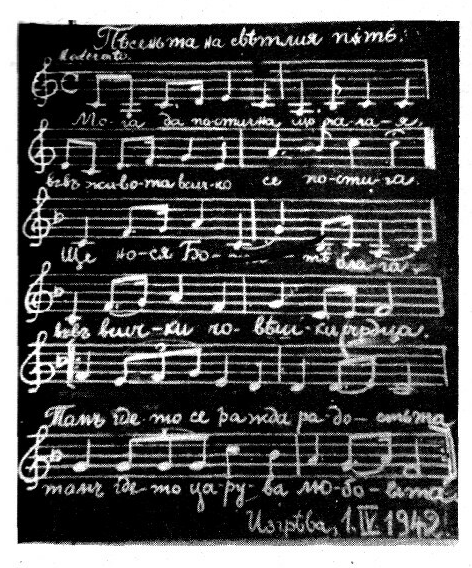 Пѣсеньта на свѣтлия пѫть.
Moderato.
Мо-га да по-стигна що же-ла-я.
въвъ живо-та всич-ко се по-сти-га.
Ще но-ся Бо- -тѣ бла-га.
въвъ всич-ки чо-вѣш-ки сърдца.
Тамъ где-то се ражда ра-до-стьта
тамъ где-то ца-ру-ва лю-бо-вьта
Изгрѣва, 1.IV.1942